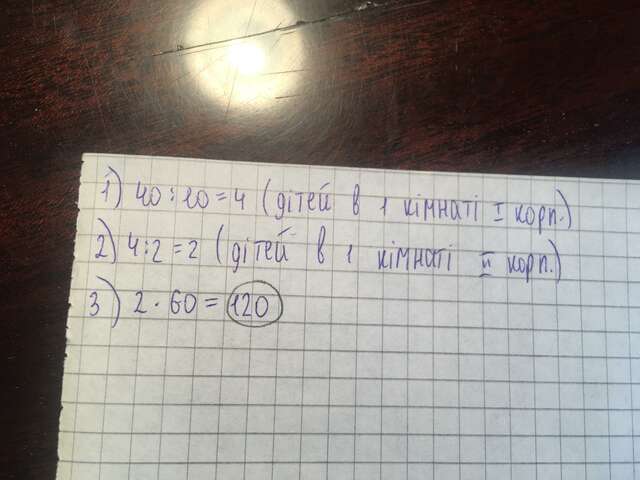 1) 40 : 10 = 4 (дітей в 1 кімнаті I корп.)
2) 4 : 2 = 2 (дітей в 1 кімнаті II корп.)
3) 2 · 60 = 120